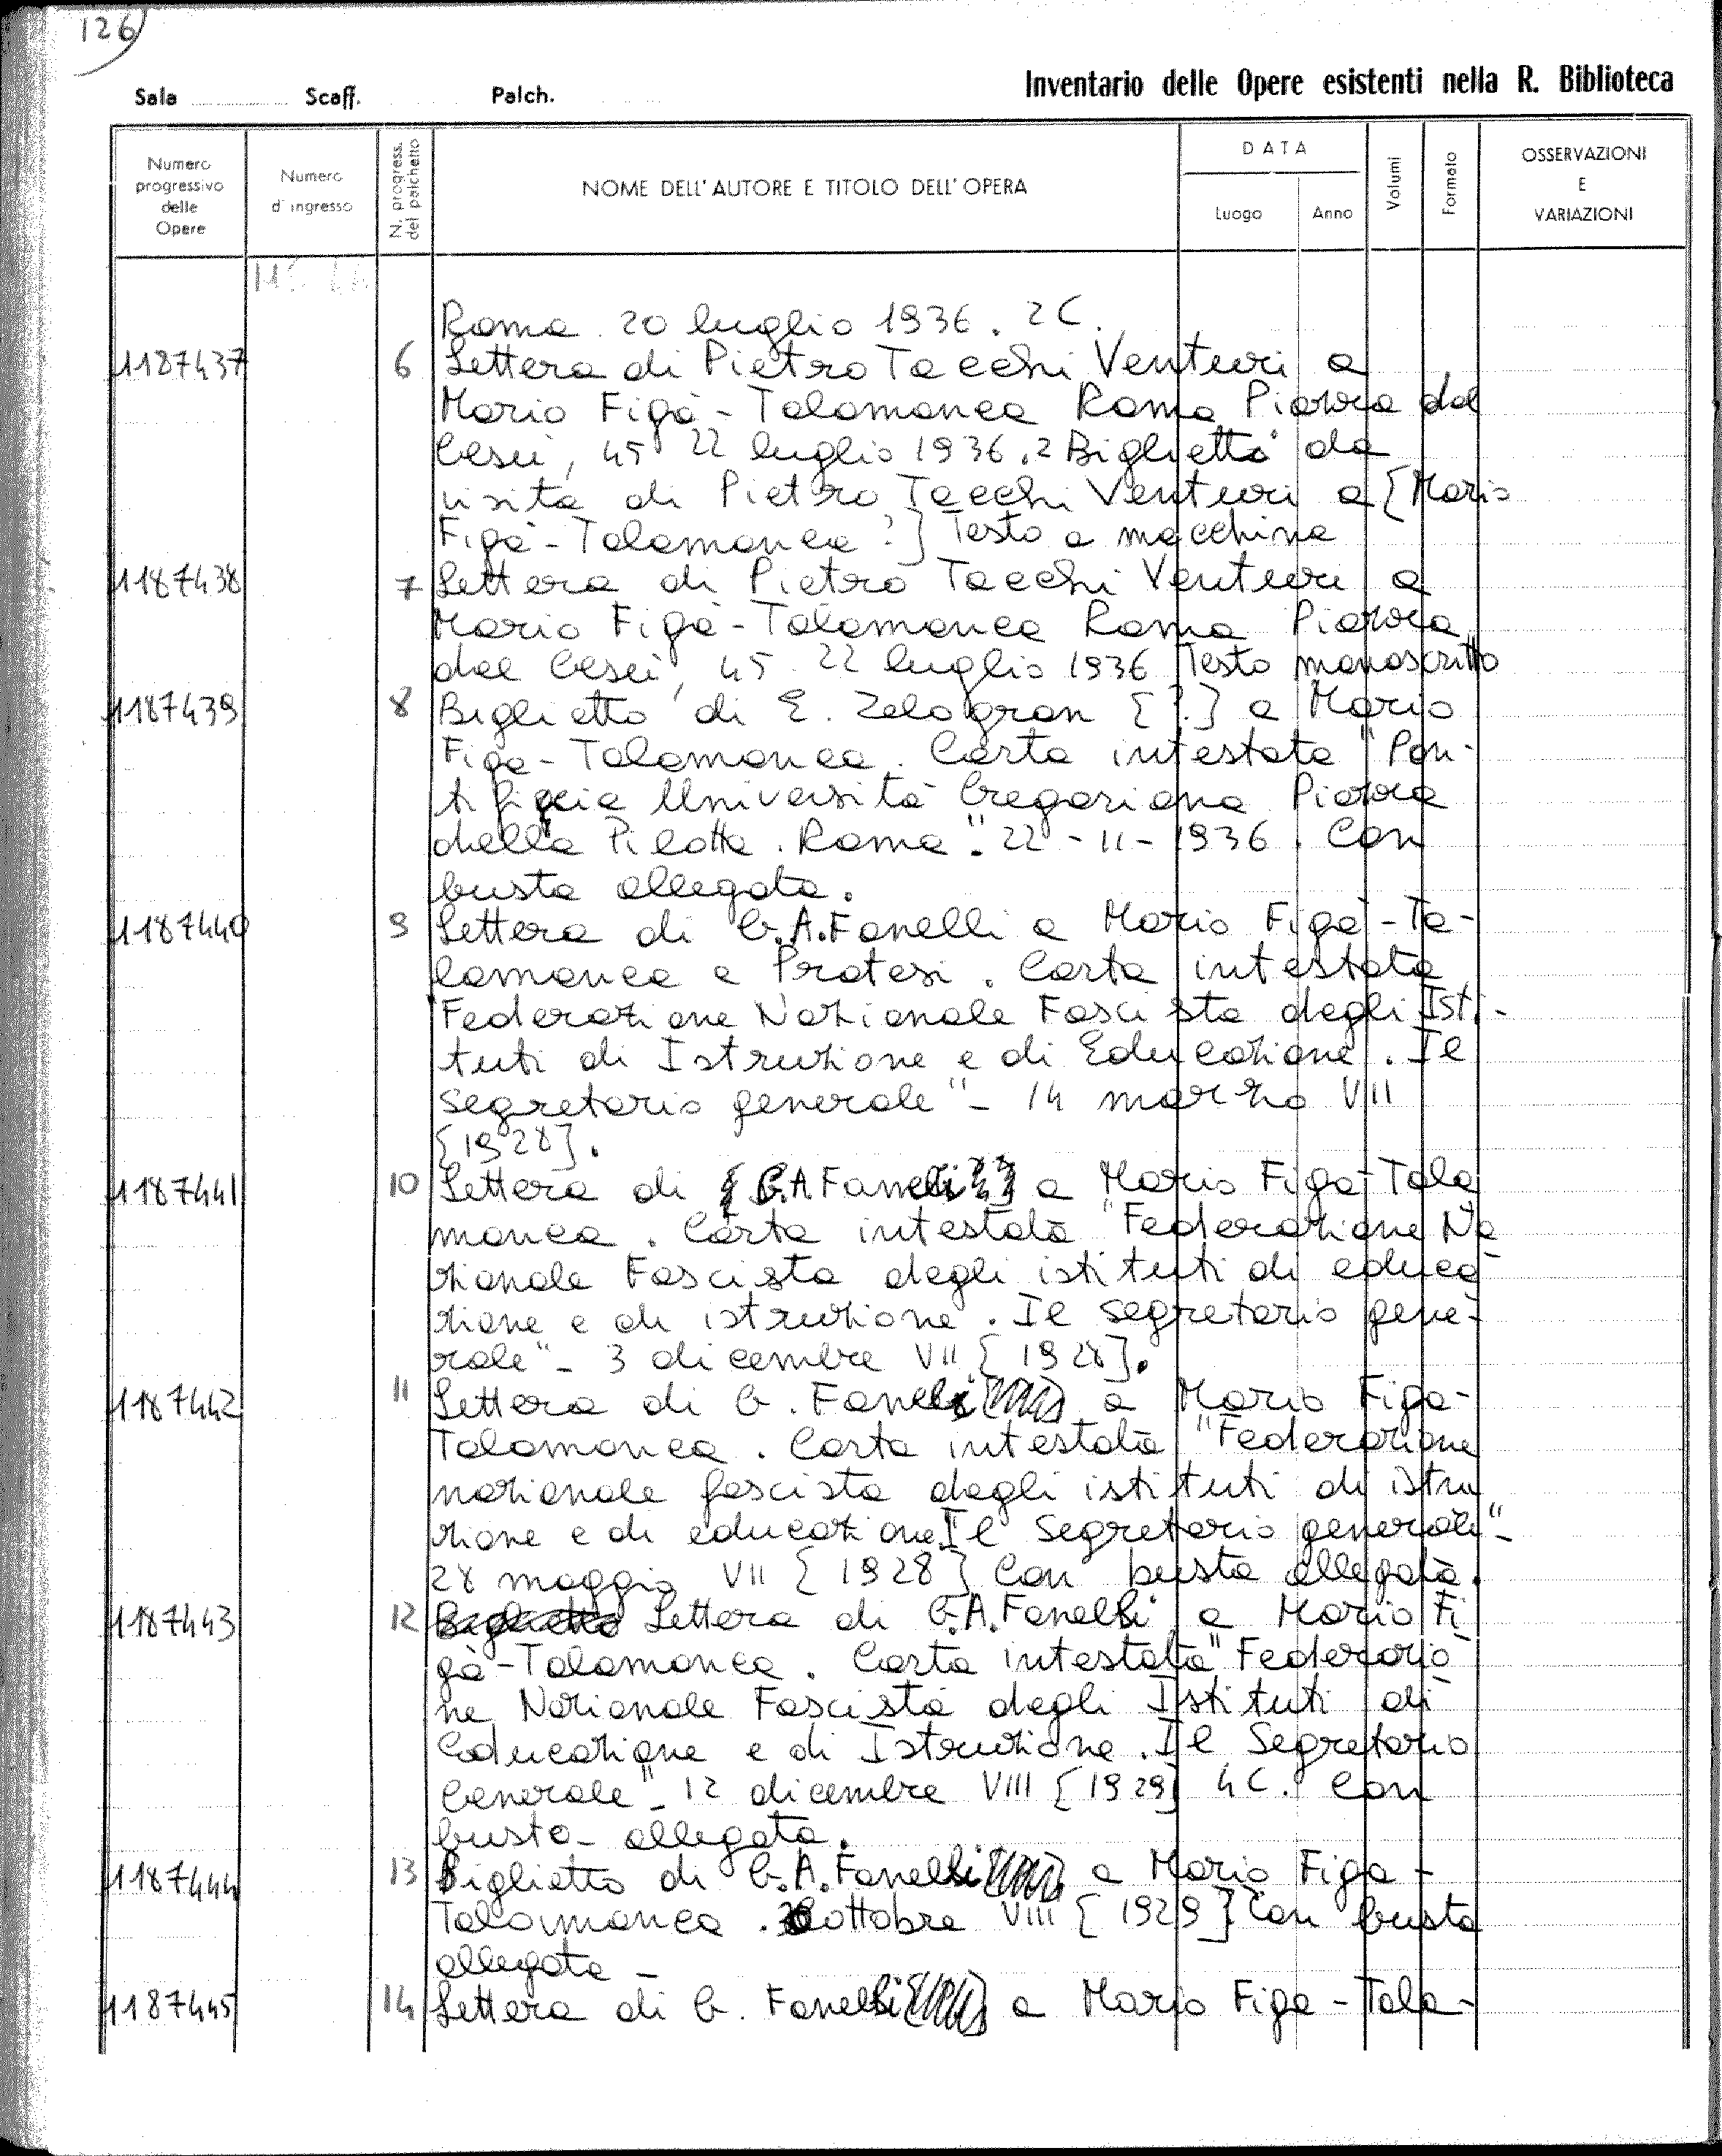 126
Sala Scaff. Palch. Inventario delle Opere esistenti nella R. Biblioteca
Numero progressivo delle Opere
Numero d'ingresso
N. progress. del palchetto
NOME DELL'AUTORE E TITOLO DELL'OPERA
DATA
Luogo
Anno
Volumi
Formato
OSSERVAZIONI E VARIAZIONI
Roma 20 luglio 1936. 2 C.
1187437 6 Lettera di Pietro Tacchi Venturi a
Mario Figà-Talamanca Roma Piazza del
Gesù, 45 22 luglio 1936. 2 Biglietti da
visita di Pietro Tacchi Venturi a [Mario
Figà-Talamanca?] Testo a macchina
1187438 7 Lettera di Pietro Tacchi Venturi a
Mario Figà-Talamanca Roma Piazza
del Gesù, 45. 22 luglio 1936 Testo manoscritto
1187439 8 Biglietto di E. Zelogran [?] a Mario
Figa-Talamanca. Carta intestata "Pon-
tificia Università Gregoriana Piazza
della Pilotta. Roma". 22-11-1936. Con
busta allegata.
1187440 9 Lettera di G.A.Fanelli a Mario Figà-Ta-
lamanca e Pratesi. Carta intestata
"Federazione Nazionale Fascista degli Isti-
tuti di Istruzione e di Educazione. Il
segretario generale" - 14 marzo VII
[1928].
1187441 10 Lettera di G.A Fanelli a Mario Figa-Tala
manca. Carta intestata "Federazione Na
zionale Fascista degli istituti di educa-
zione e di istruzione. Il segretario gene-
rale" - 3 dicembre VII [1928].
1187442 11 Lettera di G. Fanelli a Mario Figa-
Talamanca. Carta intestata "Federazione
nazionale fascista degli istituti di istru
zione e di educazione. Il Segretario generale" -
28 maggio VII [1928] Con busta allegata.
1187443 12 Biglietto Lettera di G.A.Fanelli a Mario Fi
gà-Talamanca. Carta intestata "Federazio
ne Nazionale Fascista degli Istituti di
Educazione e di Istruzione. Il Segretario
Generale" - 12 dicembre VIII [1929] 4 C. Con
busta allegata.
1187444 13 Biglietto di G.A.Fanelli a Mario Figa-
Talamanca. ottobre VIII [1929] Con busta
allegata -
1187445 14 Lettera di G. Fanelli a Mario Figa-Tala-